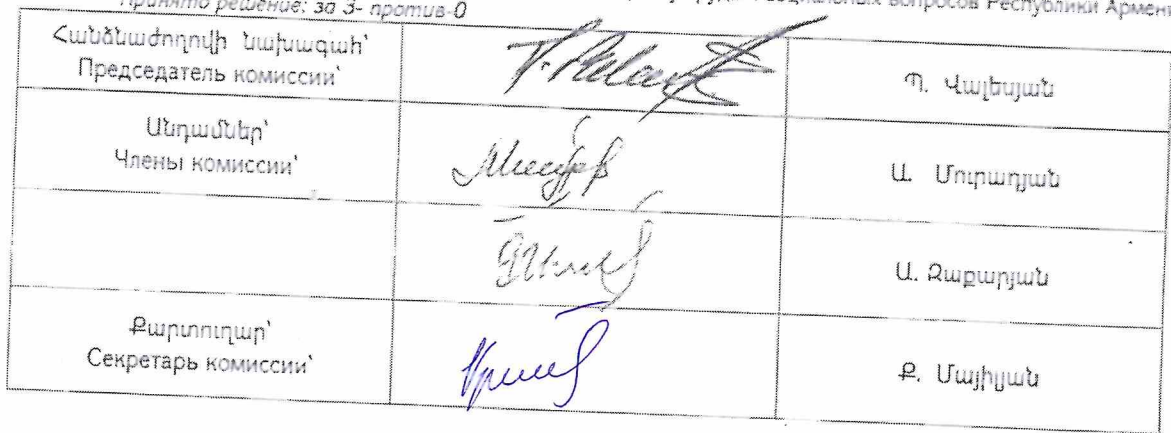 Принято решение: за 3- против-0
социальных вопросов Республики
Հանձնաժողովի նախագահ՝
Председатель комиссии՝
Պ. Վալեսյան
Անդամներ՝
Члены комиссии՝
Ա. Մուրադյան
Ա. Զաքարյան
Քարտուղար՝
Секретарь комиссии՝
Ք. Մայիլյան